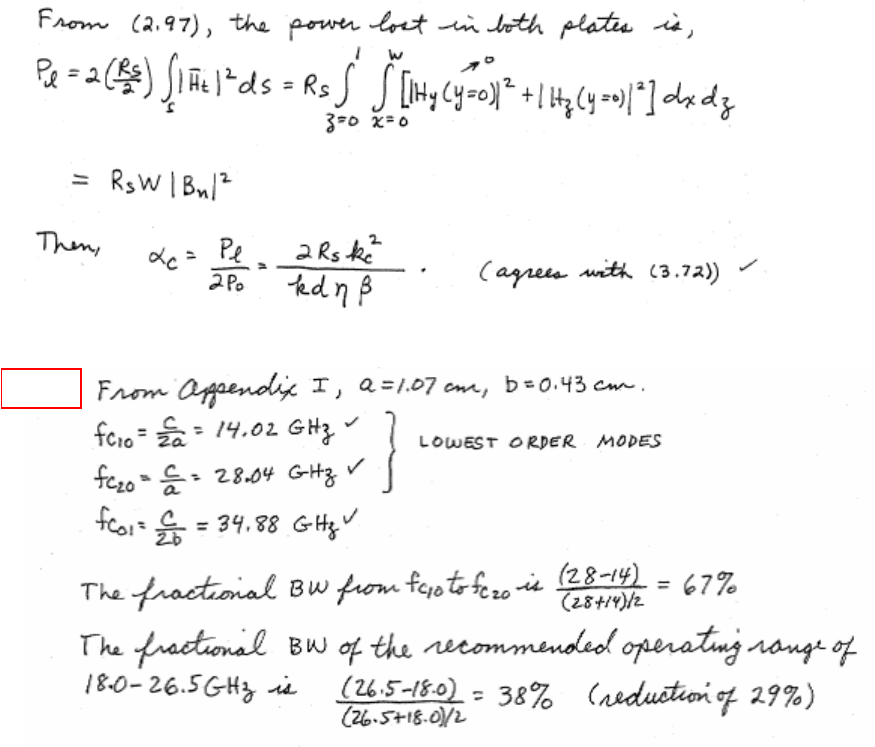 From (2.97), the power lost in both plates is,
Pℓ = 2(Rs/2) ∫s |H̄t|² ds = Rs ∫_{z=0}^{1} ∫_{x=0}^{W} [|Hy(y=0)|² →0 + |Hz(y=0)|²] dx dz
= Rs W |Bn|²
Then, αc = Pℓ/2P₀ = 2 Rs kc²/k d η β . (agrees with (3.72)) ✓
From Appendix I, a=1.07 cm, b=0.43 cm.
fc10 = c/2a = 14.02 GHz ✓
} LOWEST ORDER MODES
fc20 = c/a = 28.04 GHz ✓
fc01 = c/2b = 34.88 GHz ✓
The fractional BW from fc10 to fc20 is (28-14)/(28+14)/2 = 67%
The fractional BW of the recommended operating range of
18.0-26.5 GHz is (26.5-18.0)/(26.5+18.0)/2 = 38% (reduction of 29%)